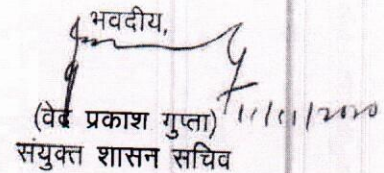 भवदीय,
(वेद प्रकाश गुप्ता) 11/11/2020
संयुक्त शासन सचिव